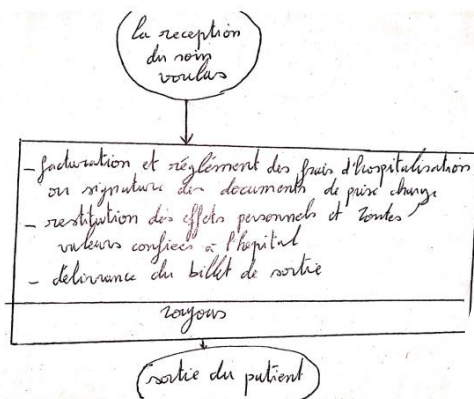 la reception
du soin
voulus
- facturation et réglément des frais d'hospitalisation
ou signature des documents de prise charge
- restitution des effets personnels et toutes
valeurs confiées à l'hopital
- délivrance du billet de sortie
toujours
sortie du patient